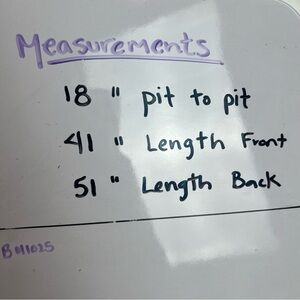 Measurements
18 " pit to pit
41 " Length Front
51 " Length Back